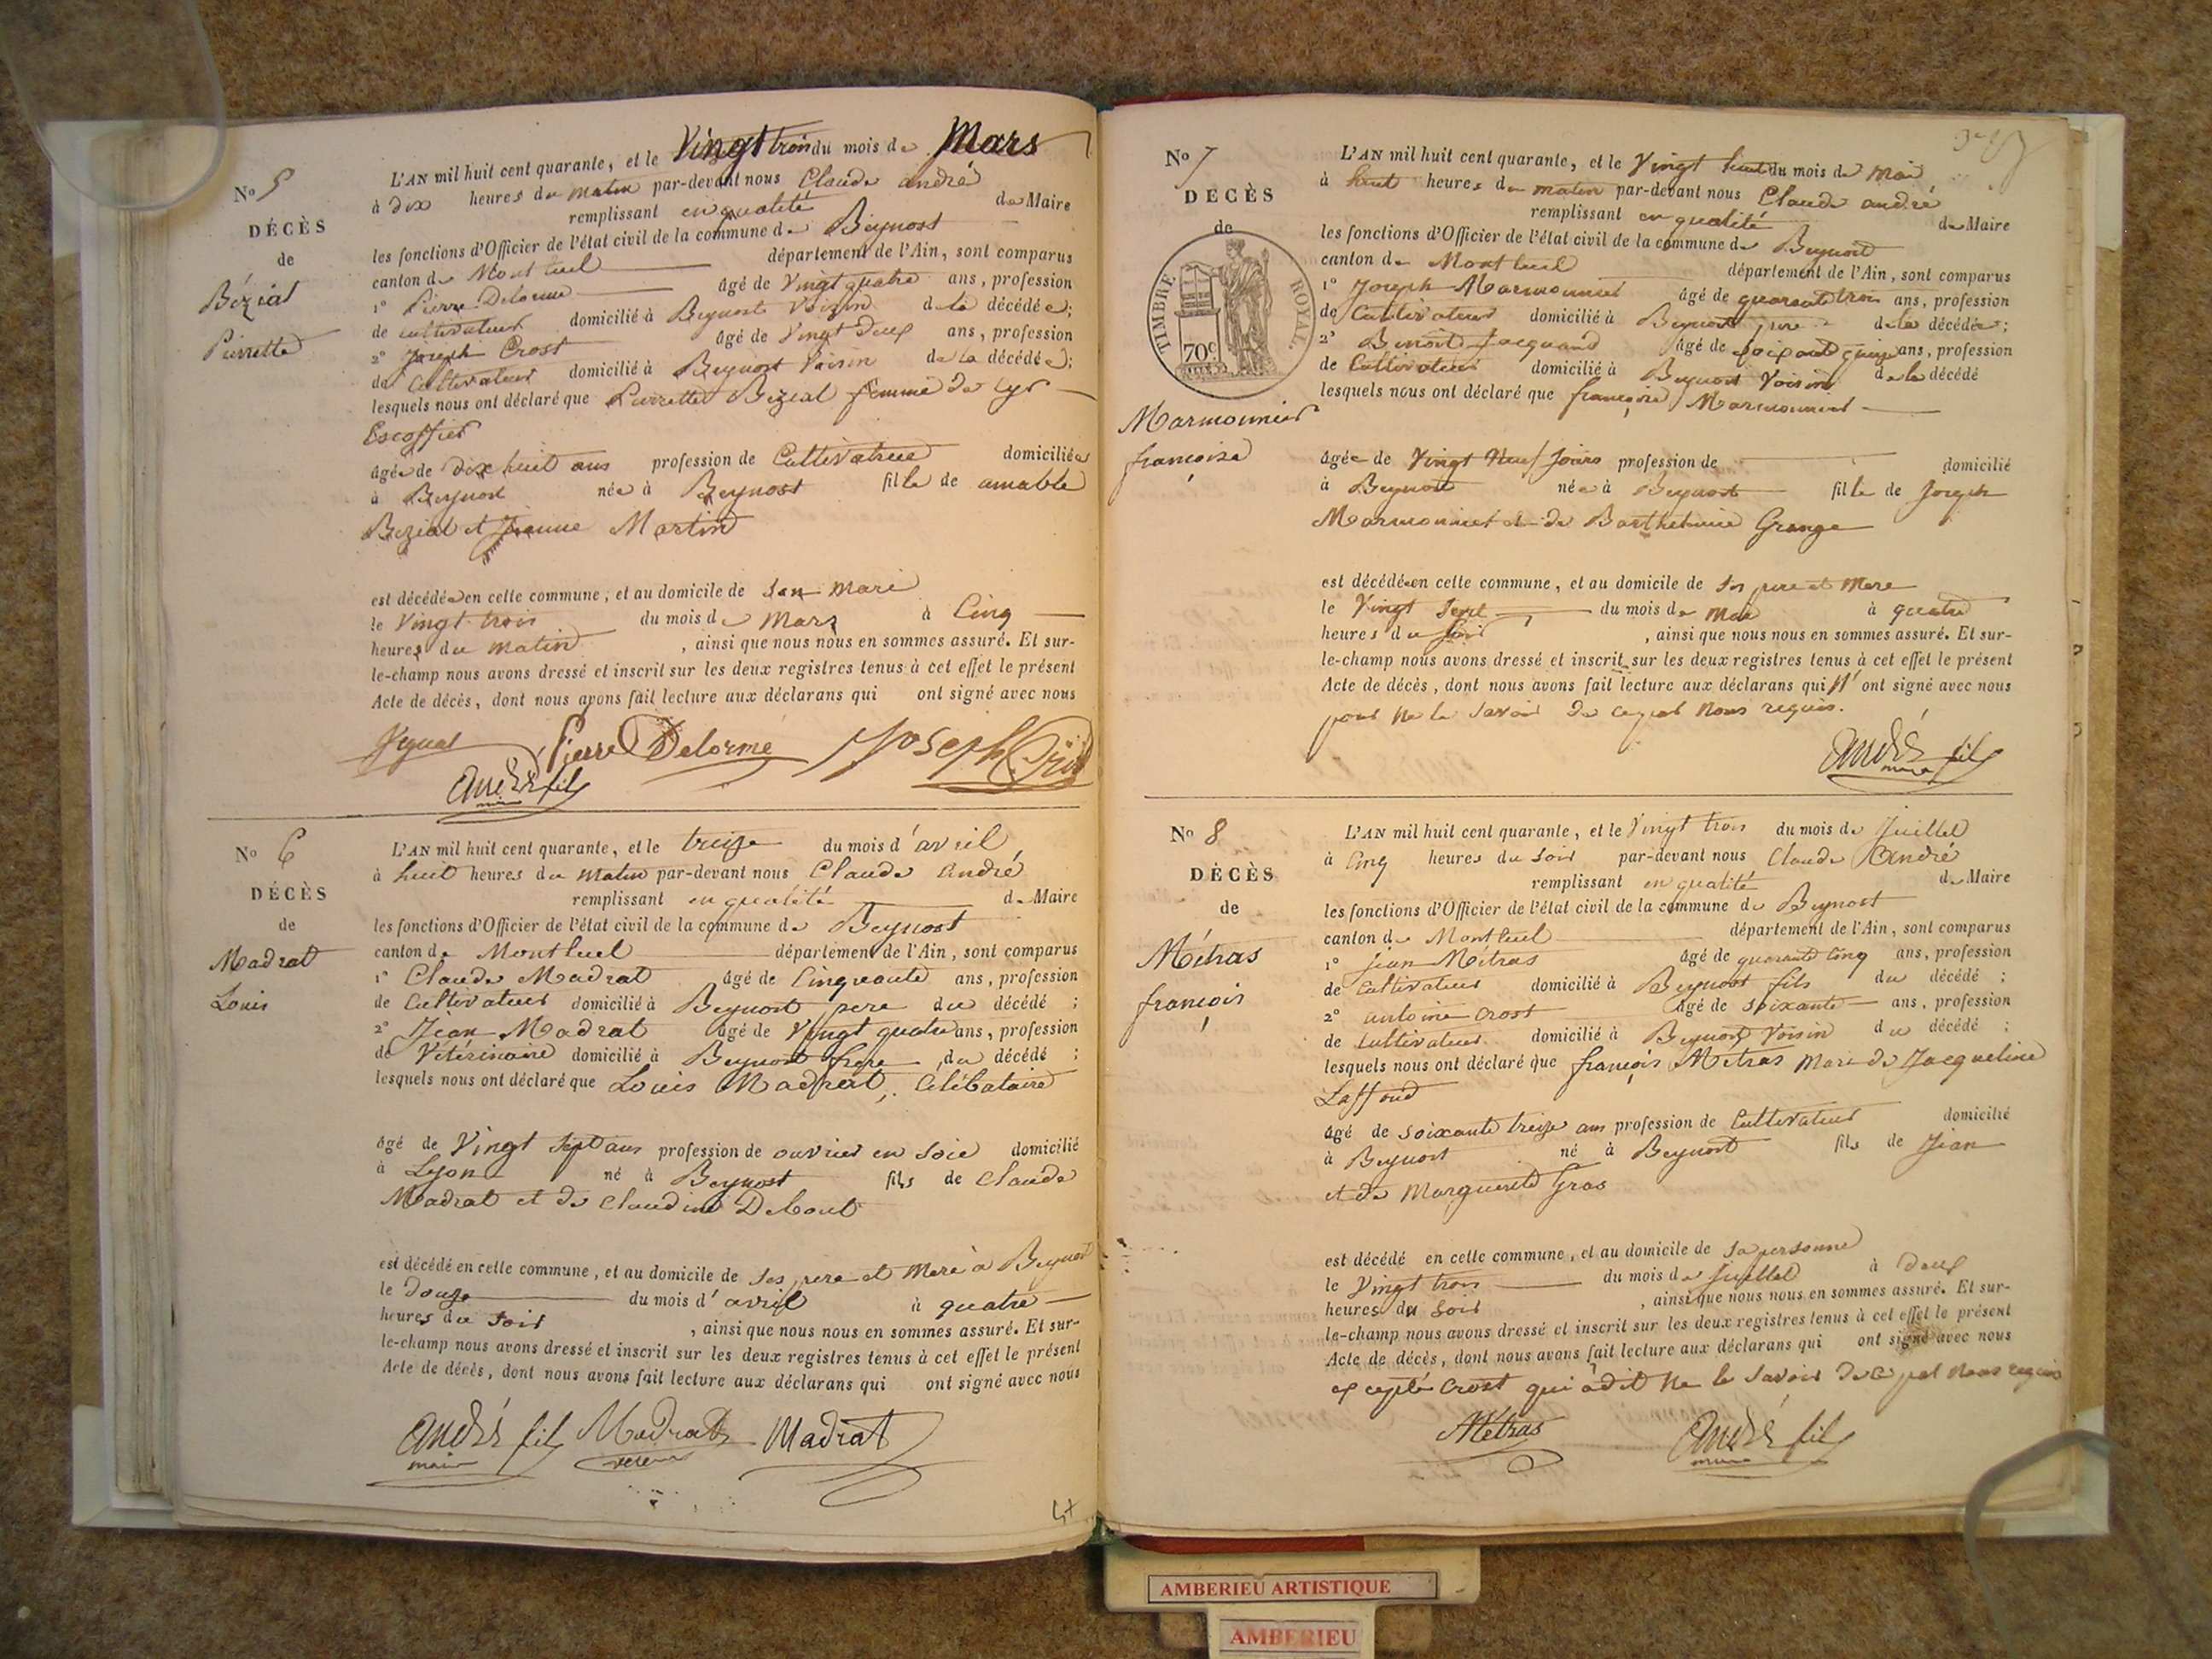 No 5
DÉCÈS
de
Bézial
Pierrette
L'AN mil huit cent quarante, et le Vingt trois du mois de Mars
à dix heures du matin par-devant nous Claude andré
remplissant en qualité de Maire
les fonctions d'Officier de l'état civil de la commune de Beynost
canton de Montluel département de l'Ain, sont comparus
1° Pierre Delorme âgé de Vingt quatre ans, profession
de cultivateur domicilié à Beynost Voisin de la décédée;
2° Joseph Crost âgé de Vingt deux ans, profession
de Cultivateur domicilié à Beynost Voisin de la décédée;
lesquels nous ont déclaré que Pierrette Bezial femme de Cyr
Escoffier
âgée de dix huit ans profession de Cultivatrice domiciliée
à Beynost née à Beynost fille de amable
Bezial et Jeanne Martin
est décédée en cette commune, et au domicile de Son mari
le Vingt trois du mois de Mars à Cinq
heures du matin, ainsi que nous nous en sommes assuré. Et sur-
le-champ nous avons dressé et inscrit sur les deux registres tenus à cet effet le présent
Acte de décès, dont nous avons fait lecture aux déclarans qui ont signé avec nous
Pierre Delorme Joseph Crost
André fils
maire
No 6
DÉCÈS
de
Madrat
Louis
L'AN mil huit cent quarante, et le treize du mois d'avril
à huit heures du matin par-devant nous Claude André
remplissant en qualité de Maire
les fonctions d'Officier de l'état civil de la commune de Beynost
canton de Montluel département de l'Ain, sont comparus
1° Claude Madrat âgé de Cinquante ans, profession
de Cultivateur domicilié à Beynost pere du décédé;
2° Jean Madrat âgé de Vingt quatre ans, profession
de Vétérinaire domicilié à Beynost frere du décédé;
lesquels nous ont déclaré que Louis Madrat, Célibataire
âgé de Vingt Sept ans profession de ouvrier en Soie domicilié
à Lyon né à Beynost fils de Claude
Madrat et de Claudine Debout
est décédé en cette commune, et au domicile de Ses pere et Mere à Beynost
le douze du mois d'avril à quatre
heures du Soir, ainsi que nous nous en sommes assuré. Et sur-
le-champ nous avons dressé et inscrit sur les deux registres tenus à cet effet le présent
Acte de décès, dont nous avons fait lecture aux déclarans qui ont signé avec nous
André fils Madrat Madrat
maire
No 7
DÉCÈS
de
TIMBRE ROYAL.
70c
Marmonnier
françoise
L'AN mil huit cent quarante, et le Vingt huit du mois de Mai
à huit heures du matin par-devant nous Claude andré
remplissant en qualité de Maire
les fonctions d'Officier de l'état civil de la commune de Beynost
canton de Montluel département de l'Ain, sont comparus
1° Joseph Marmonnier âgé de quarante trois ans, profession
de Cultivateur domicilié à Beynost pere de la décédée;
2° Benoit Jacquand âgé de Soixante quinze ans, profession
de Cultivateur domicilié à Beynost Voisin de la décédé
lesquels nous ont déclaré que françoise Marmonnier
âgée de Vingt Neuf Jours profession de domicilié
à Beynost née à Beynost fille de Joseph
Marmonnier et de Barthelmie Grange
est décédée en cette commune, et au domicile de Ses pere et Mere
le Vingt Sept du mois de Mai à quatre
heures du Soir, ainsi que nous nous en sommes assuré. Et sur-
le-champ nous avons dressé et inscrit sur les deux registres tenus à cet effet le présent
Acte de décès, dont nous avons fait lecture aux déclarans qui N'ont signé avec nous
pour Ne le Savoir de ce par Nous requis.
André fils
maire
No 8
DÉCÈS
de
Métras
françois
L'AN mil huit cent quarante, et le Vingt trois du mois de Juillet
à Cinq heures du Soir par-devant nous Claude André
remplissant en qualité de Maire
les fonctions d'Officier de l'état civil de la commune de Beynost
canton de Montluel département de l'Ain, sont comparus
1° Jean Métras âgé de quarante Cinq ans, profession
de Cultivateur domicilié à Beynost fils du décédé;
2° antoine Crost âgé de Soixante ans, profession
de Cultivateur domicilié à Beynost Voisin du décédé;
lesquels nous ont déclaré que françois Métras Mari de Jacqueline
Laffond
âgé de Soixante treize ans profession de Cultivateur domicilié
à Beynost né à Beynost fils de Jean
et de Marguerite Gras
est décédé en cette commune, et au domicile de Sa personne
le Vingt trois du mois de Juillet à deux
heures du Soir, ainsi que nous nous en sommes assuré. Et sur-
le-champ nous avons dressé et inscrit sur les deux registres tenus à cet effet le présent
Acte de décès, dont nous avons fait lecture aux déclarans qui ont signé avec nous
excepté Crost qui a dit Ne le Savoir de ce par Nous requis
Métras André fils
maire
AMBERIEU ARTISTIQUE
AMBERIEU